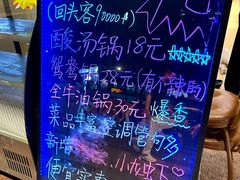 (回头客90000+)
酸汤锅18元
鸳鸯锅28元(有不辣的)
全牛油锅30元 爆香
菜品丰富 空调管够
新增 小龙虾
便宜实惠